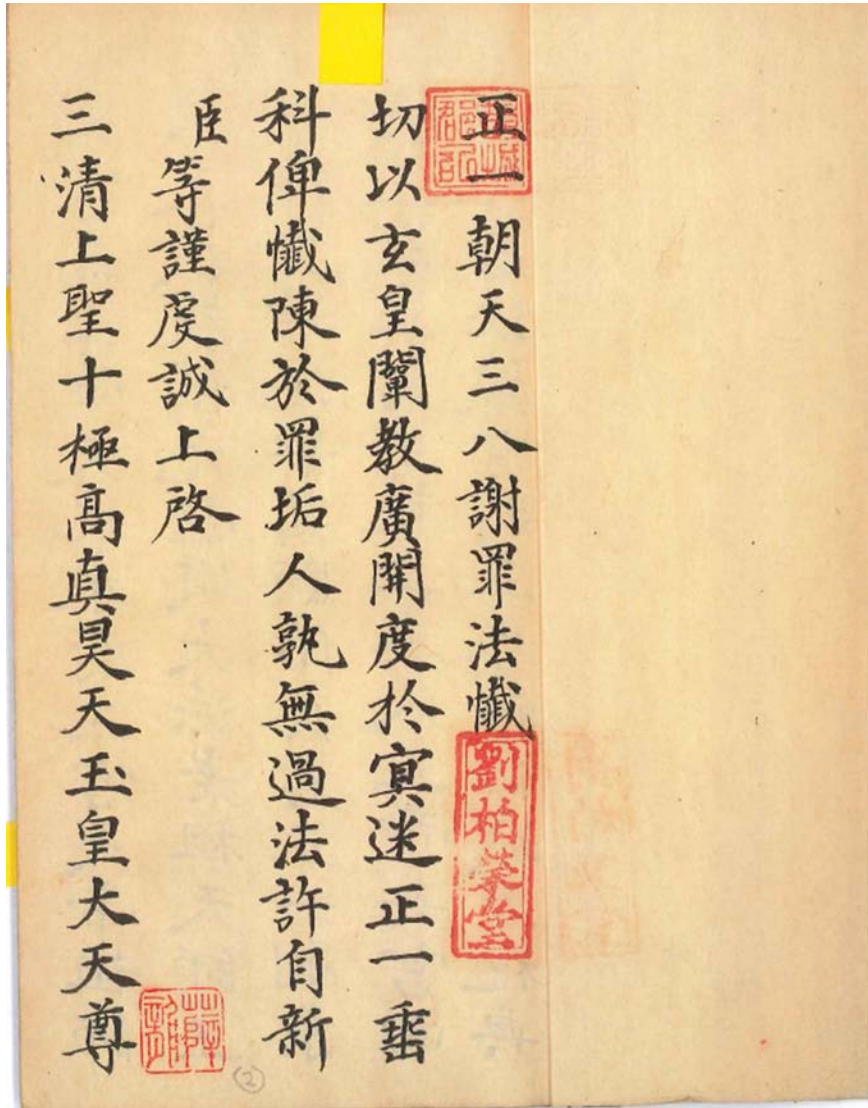 正一朝天三八謝罪法懺
劉柏榮堂
切以玄皇闡教廣開度於寅迷正一垂
科俾懺陳於罪垢人孰無過法許自新
臣等謹虔誠上啓
三清上聖十極高真昊天玉皇大天尊
2